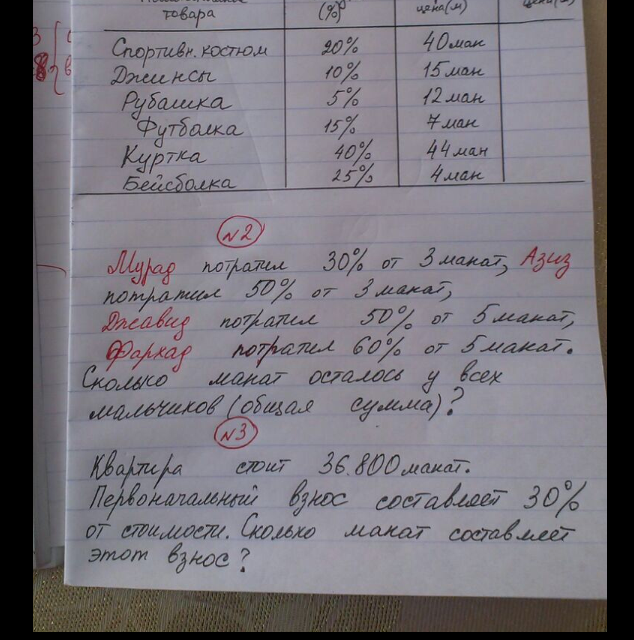 товара (%) цена(м) цена(м)
Спортивн. костюм 20% 40 ман
Джинсы 10% 15 ман
Рубашка 5% 12 ман
Футболка 15% 7 ман
Куртка 40% 44 ман
Бейсболка 25% 4 ман
№2
Мурад потратил 30% от 3 манат, Азиз
потратил 50% от 3 манат,
Джавид потратил 50% от 5 манат,
Фархад потратил 60% от 5 манат.
Сколько манат осталось у всех
мальчиков (общая сумма)?
№3
Квартира стоит 36.800 манат.
Первоначальный взнос составляет 30%
от стоимости. Сколько манат составляет
этот взнос?